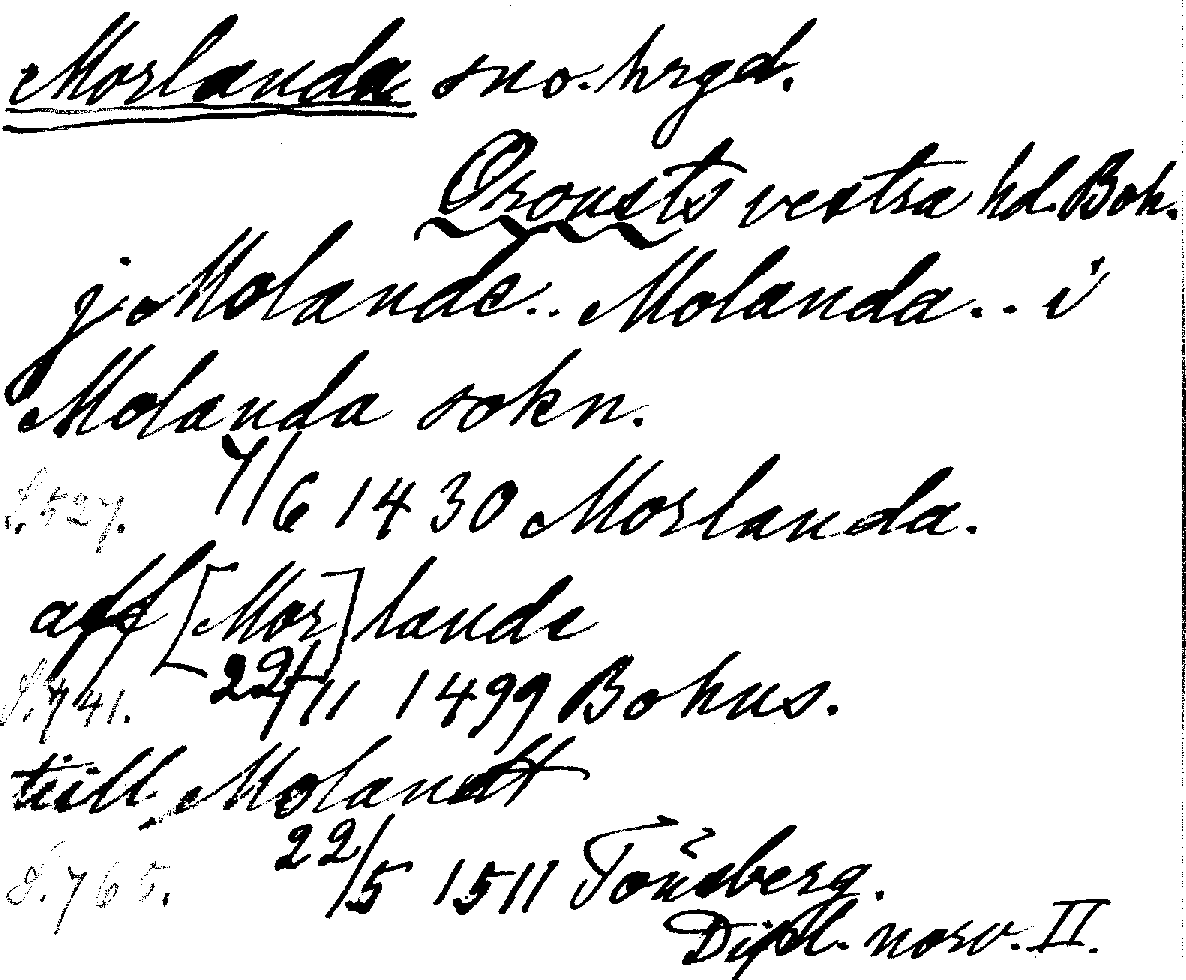 Morlanda sno. hrgd.
Orousts vestra hd. Boh.
j Molande.. Molanda.. i
Molanda sokn.
S. 527. 7/6 1430 Morlanda.
aff [Mor]lande
S. 741. 22/11 1499 Bohus.
tiill Molandt
S. 765. 22/5 1511 Tönsberg.
Dipl. norv. II.